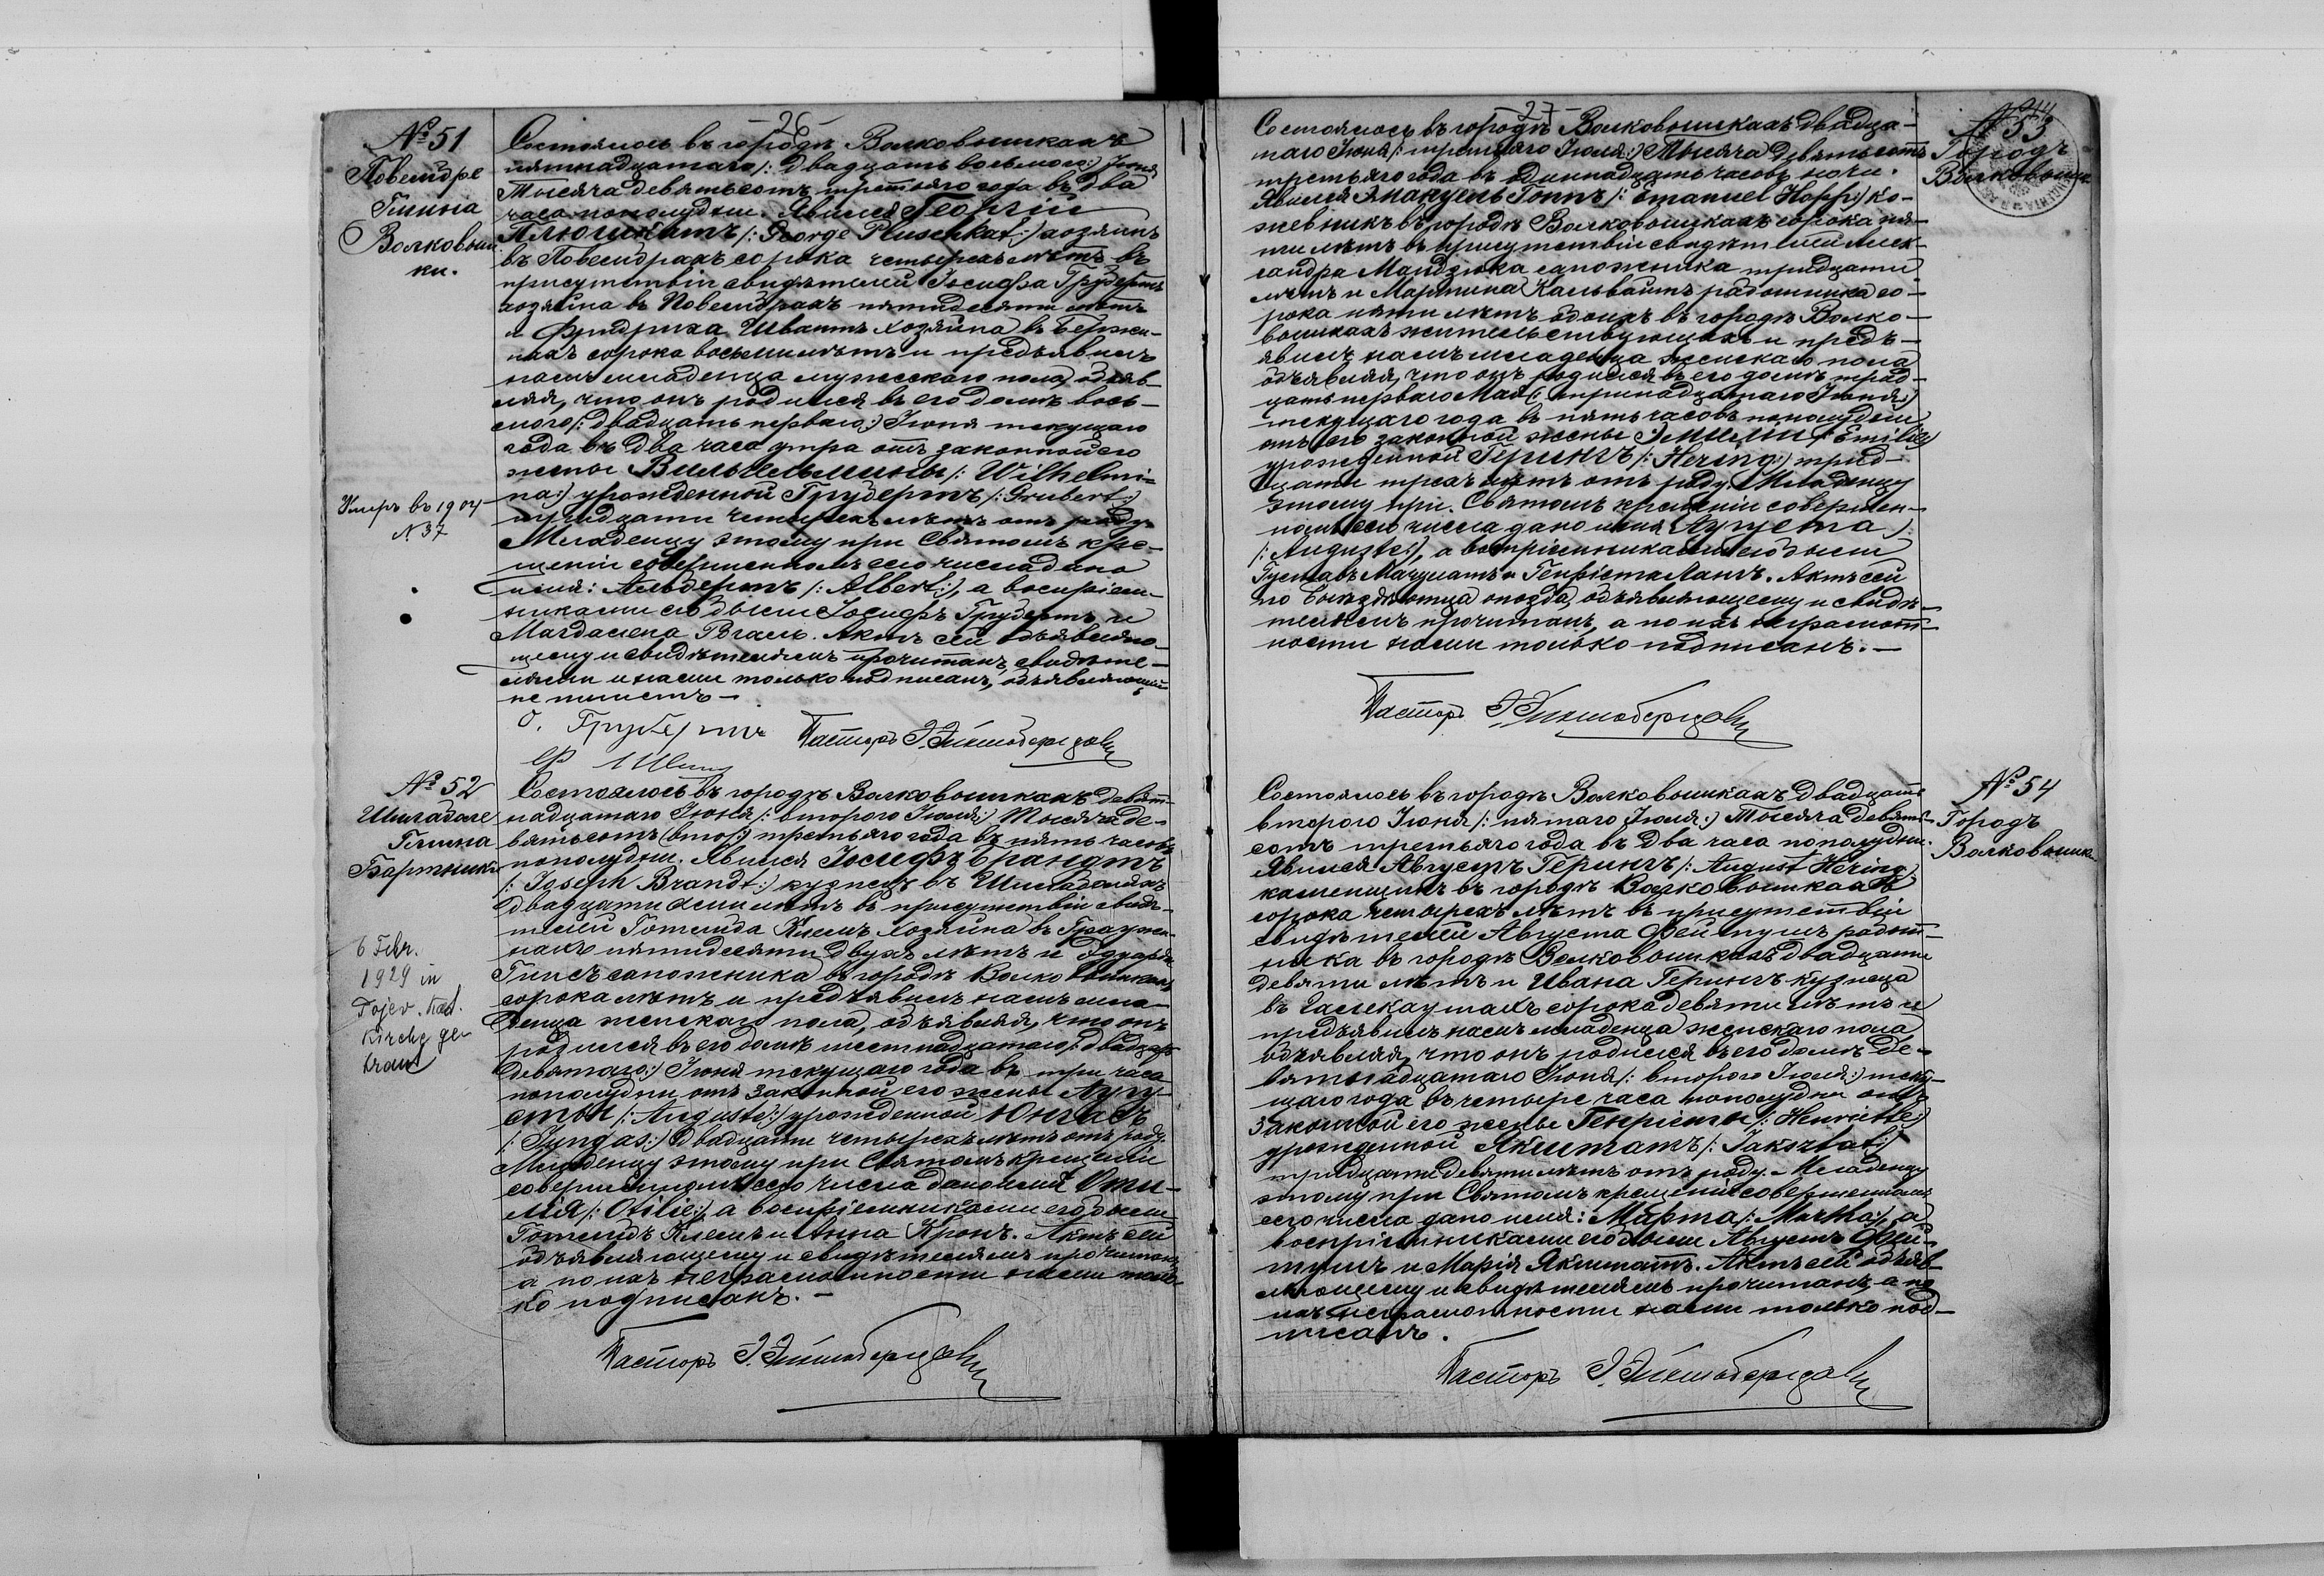 26
№ 51
Повембре
Гмина
Волковыш
ки.
Состоялось въ городѣ Волковышкахъ
пятнадцатаго /: двадцать восьмого:/ Іюня
Тысяча девятьсотъ третьяго года въ два
часа пополудни. Явился Георгій
Плюшкатъ /: George Pluschkat:/ хозяинъ
въ Повембрахъ сорока четырехъ лѣтъ въ
присутствіи свидѣтелей Іосифа Грубертъ
хозяина въ Повембрахъ пятидесяти лѣтъ
и Фридриха Швантъ хозяина въ Бержи-
нахъ сорока восьми лѣтъ и предъявилъ
намъ младенца мужескаго пола, объяв-
ляя, что онъ родился въ его домѣ вось-
мого /: двадцать перваго:/ Іюня текущаго
года въ два часа утра отъ законной его
жены Вильгельмины /: Wilhelmi-
na:/ урожденной Грубертъ /: Grubert:/
тридцати четырехъ лѣтъ отъ роду.
Младенцу этому при Святомъ кре-
щеніи совершенномъ сего числа дано
имя: Альбертъ /: Albert:/, а воспріем-
никами его были Іосифъ Грубертъ и
Магдалена. Актъ сей объявляю-
щему и свидѣтелямъ прочитанъ, свидѣте-
лями и нами только подписанъ, объявляющій
не пишетъ —
Умеръ въ 1904
№ 37
О. Грубертъ Пасторъ
№ 52
Гмина
Бартники
Состоялось въ городѣ Волковышкахъ девят-
надцатаго Іюня /: второго Іюля:/ Тысяча де-
вятьсотъ (вто:/) третьяго года въ пять часовъ
пополудни. Явился Іосифъ Брандтъ
/: Joseph Brandt:/ кузнецъ въ
двадцати семи лѣтъ въ присутствіи свидѣ-
телей Готлида Клемъ хозяина въ Гражи-
нахъ пятидесяти двухъ лѣтъ и Эдуарда
сапожника въ городѣ Волковышкахъ
сорока лѣтъ и предъявилъ намъ мла-
денца женскаго пола, объявляя, что онъ
родился въ его домѣ шестнадцатаго /: двадцать
девятаго:/ Іюня текущаго года въ три часа
пополудни отъ законной его жены Авгу-
сты /: Auguste:/ урожденной Юнгасъ
/: Jungas:/ двадцати четырехъ лѣтъ отъ роду.
Младенцу этому при Святомъ крещеніи
совершенномъ сего числа дано имя Оти-
лія /: Otilie:/, а воспріемниками его были
Готлидъ Клемъ и Анна Кронъ. Актъ сей
объявляющему и свидѣтелямъ прочитанъ,
а по ихъ неграмотности нами толь-
ко подписанъ. —
6 Febr.
1929 in
Kirche ge-
traut
Пасторъ
27
№ 53
Городъ
Волковышки
Состоялось въ городѣ Волковышкахъ двадца-
таго Іюня /: третьяго Іюля:/ Тысяча девятьсотъ
третьяго года въ одиннадцать часовъ ночи.
Явился Эмануель Гоппъ /: Emanuel Hopp:/ ко-
жевникъ въ городѣ Волковышкахъ сорока пя-
ти лѣтъ въ присутствіи свидѣтелей Алек-
сандра Мандзюка сапожника тридцати
лѣтъ и Мартина Кальвайтъ работника со-
рока пяти лѣтъ обоихъ въ городѣ Волко-
вышкахъ жительствующихъ и предъ-
явилъ намъ младенца женскаго пола
объявляя, что онъ родился въ его домѣ трид-
цать перваго Мая /: тринадцатаго Іюня:/
текущаго года въ пять часовъ пополудни
отъ его законной жены Эмиліи /: Emilie:/
урожденной Герингъ /: Hering:/ трид-
цати трехъ лѣтъ отъ роду. Младенцу
этому при Святомъ крещеніи совершен-
номъ сего числа дано имя Августа
/: Auguste:/, а воспріемниками его были
Густавъ Мачулатъ и Генріета Лангъ. Актъ сей
по отца опозда, объявляющему и свидѣ-
телямъ прочитанъ, а по ихъ неграмот-
ности нами только подписанъ. —
Пасторъ
№ 54
Городъ
Волковышки
Состоялось въ городѣ Волковышкахъ двадцать
второго Іюня /: пятаго Іюля:/ Тысяча девять-
сотъ третьяго года въ два часа пополудни.
Явился Августъ Герингъ /: August Hering:/
каменщикъ въ городѣ Волковышкахъ
сорока четырехъ лѣтъ въ присутствіи
свидѣтелей Августа работ-
ника въ городѣ Волковышкахъ двадцати
девяти лѣтъ и Ивана Герингъ кузнеца
въ сорока девяти лѣтъ и
предъявилъ намъ младенца женскаго пола
объявляя, что онъ родился въ его домѣ де-
вятнадцатаго Іюня /: второго Іюля:/ теку-
щаго года въ четыре часа пополудни отъ
законной его жены Генріеты /: Henriette:/
урожденной Якштатъ /: Jaksztat:/
тридцати девяти лѣтъ отъ роду. Младенцу
этому при Святомъ крещеніи совершенномъ
сего числа дано имя: Марта /: Martha:/, а
воспріемниками его были Августъ
и Марія Якштатъ. Актъ сей объяв-
ляющему и свидѣтелямъ прочитанъ, а по
ихъ неграмотности нами только под-
писанъ.
Пасторъ